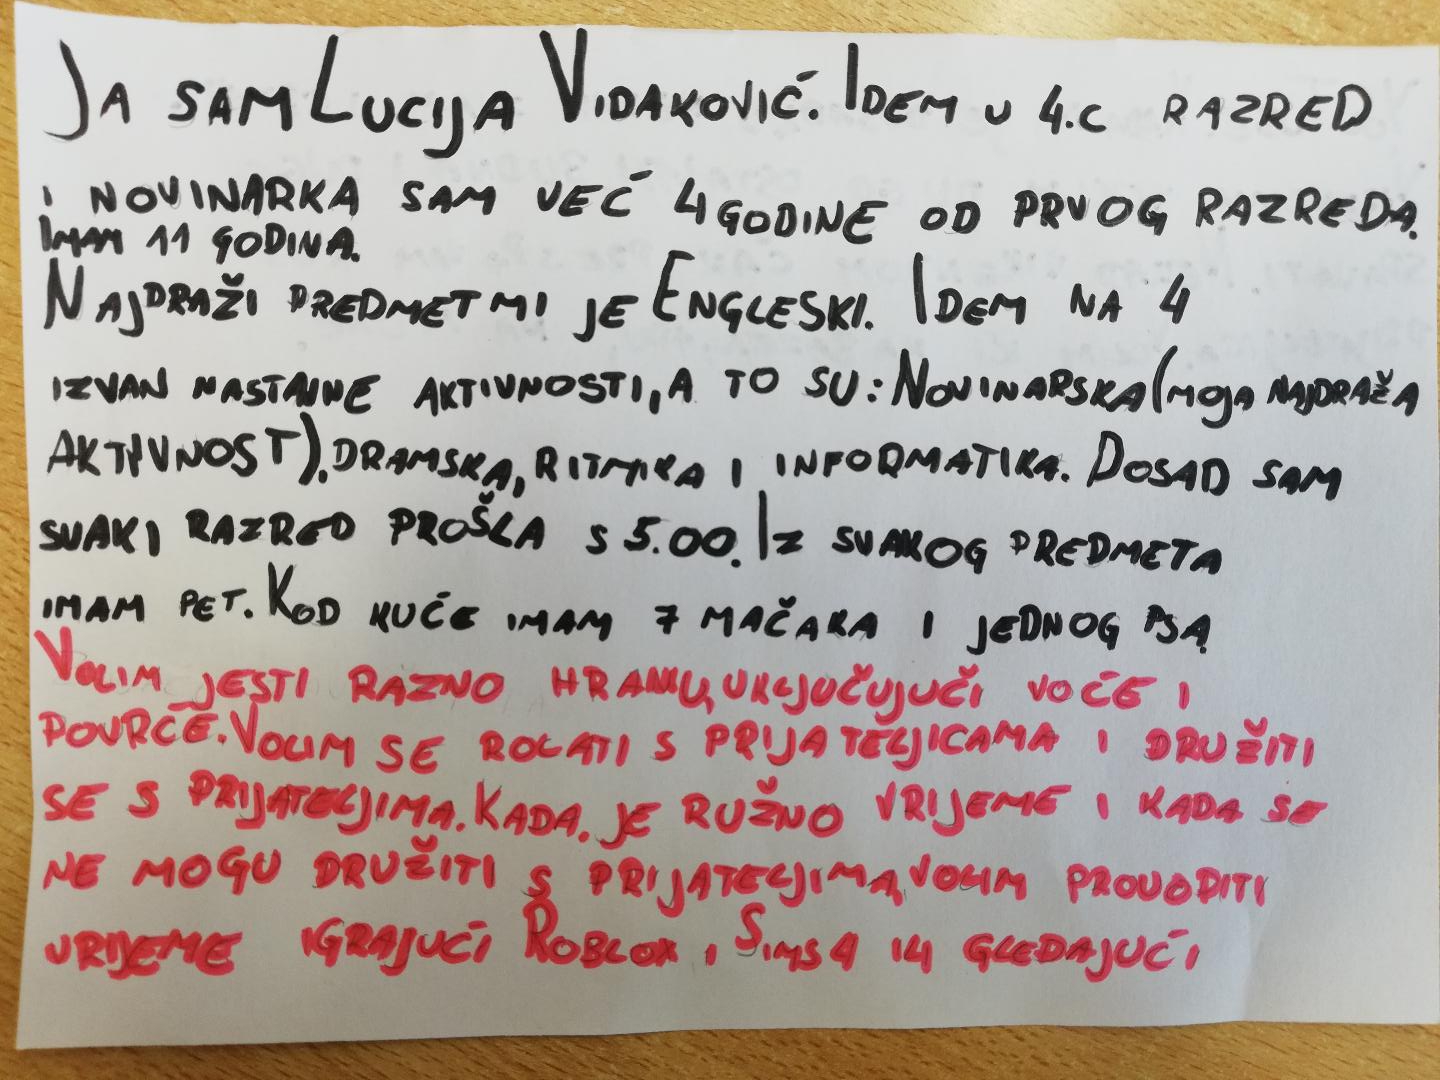 JA SAM LUCIJA VIDAKOVIĆ. IDEM U 4.C RAZRED
I NOVINARKA SAM VEĆ 4 GODINE OD PRVOG RAZREDA.
IMAM 11 GODINA.
NAJDRAŽI PREDMET MI JE ENGLESKI. IDEM NA 4
IZVAN NASTAVNE AKTIVNOSTI, A TO SU: NOVINARSKA (MOJA NAJDRAŽA
AKTIVNOST), DRAMSKA, RITMIKA I INFORMATIKA. DOSAD SAM
SVAKI RAZRED PROŠLA S 5.00. IZ SVAKOG PREDMETA
IMAM PET. KOD KUĆE IMAM 7 MAČAKA I JEDNOG PSA
VOLIM JESTI RAZNO HRANU, UKLJUČUJUČI VOĆE I
POVRĆE. VOLIM SE ROLATI S PRIJATELJICAMA I DRUŽITI
SE S PRIJATELJIMA. KADA JE RUŽNO VRIJEME I KADA SE
NE MOGU DRUŽITI S PRIJATELJIMA, VOLIM PROVODITI
VRIJEME IGRAJUĆI ROBLOX I SIMS 4 ILI GLEDAJUĆI